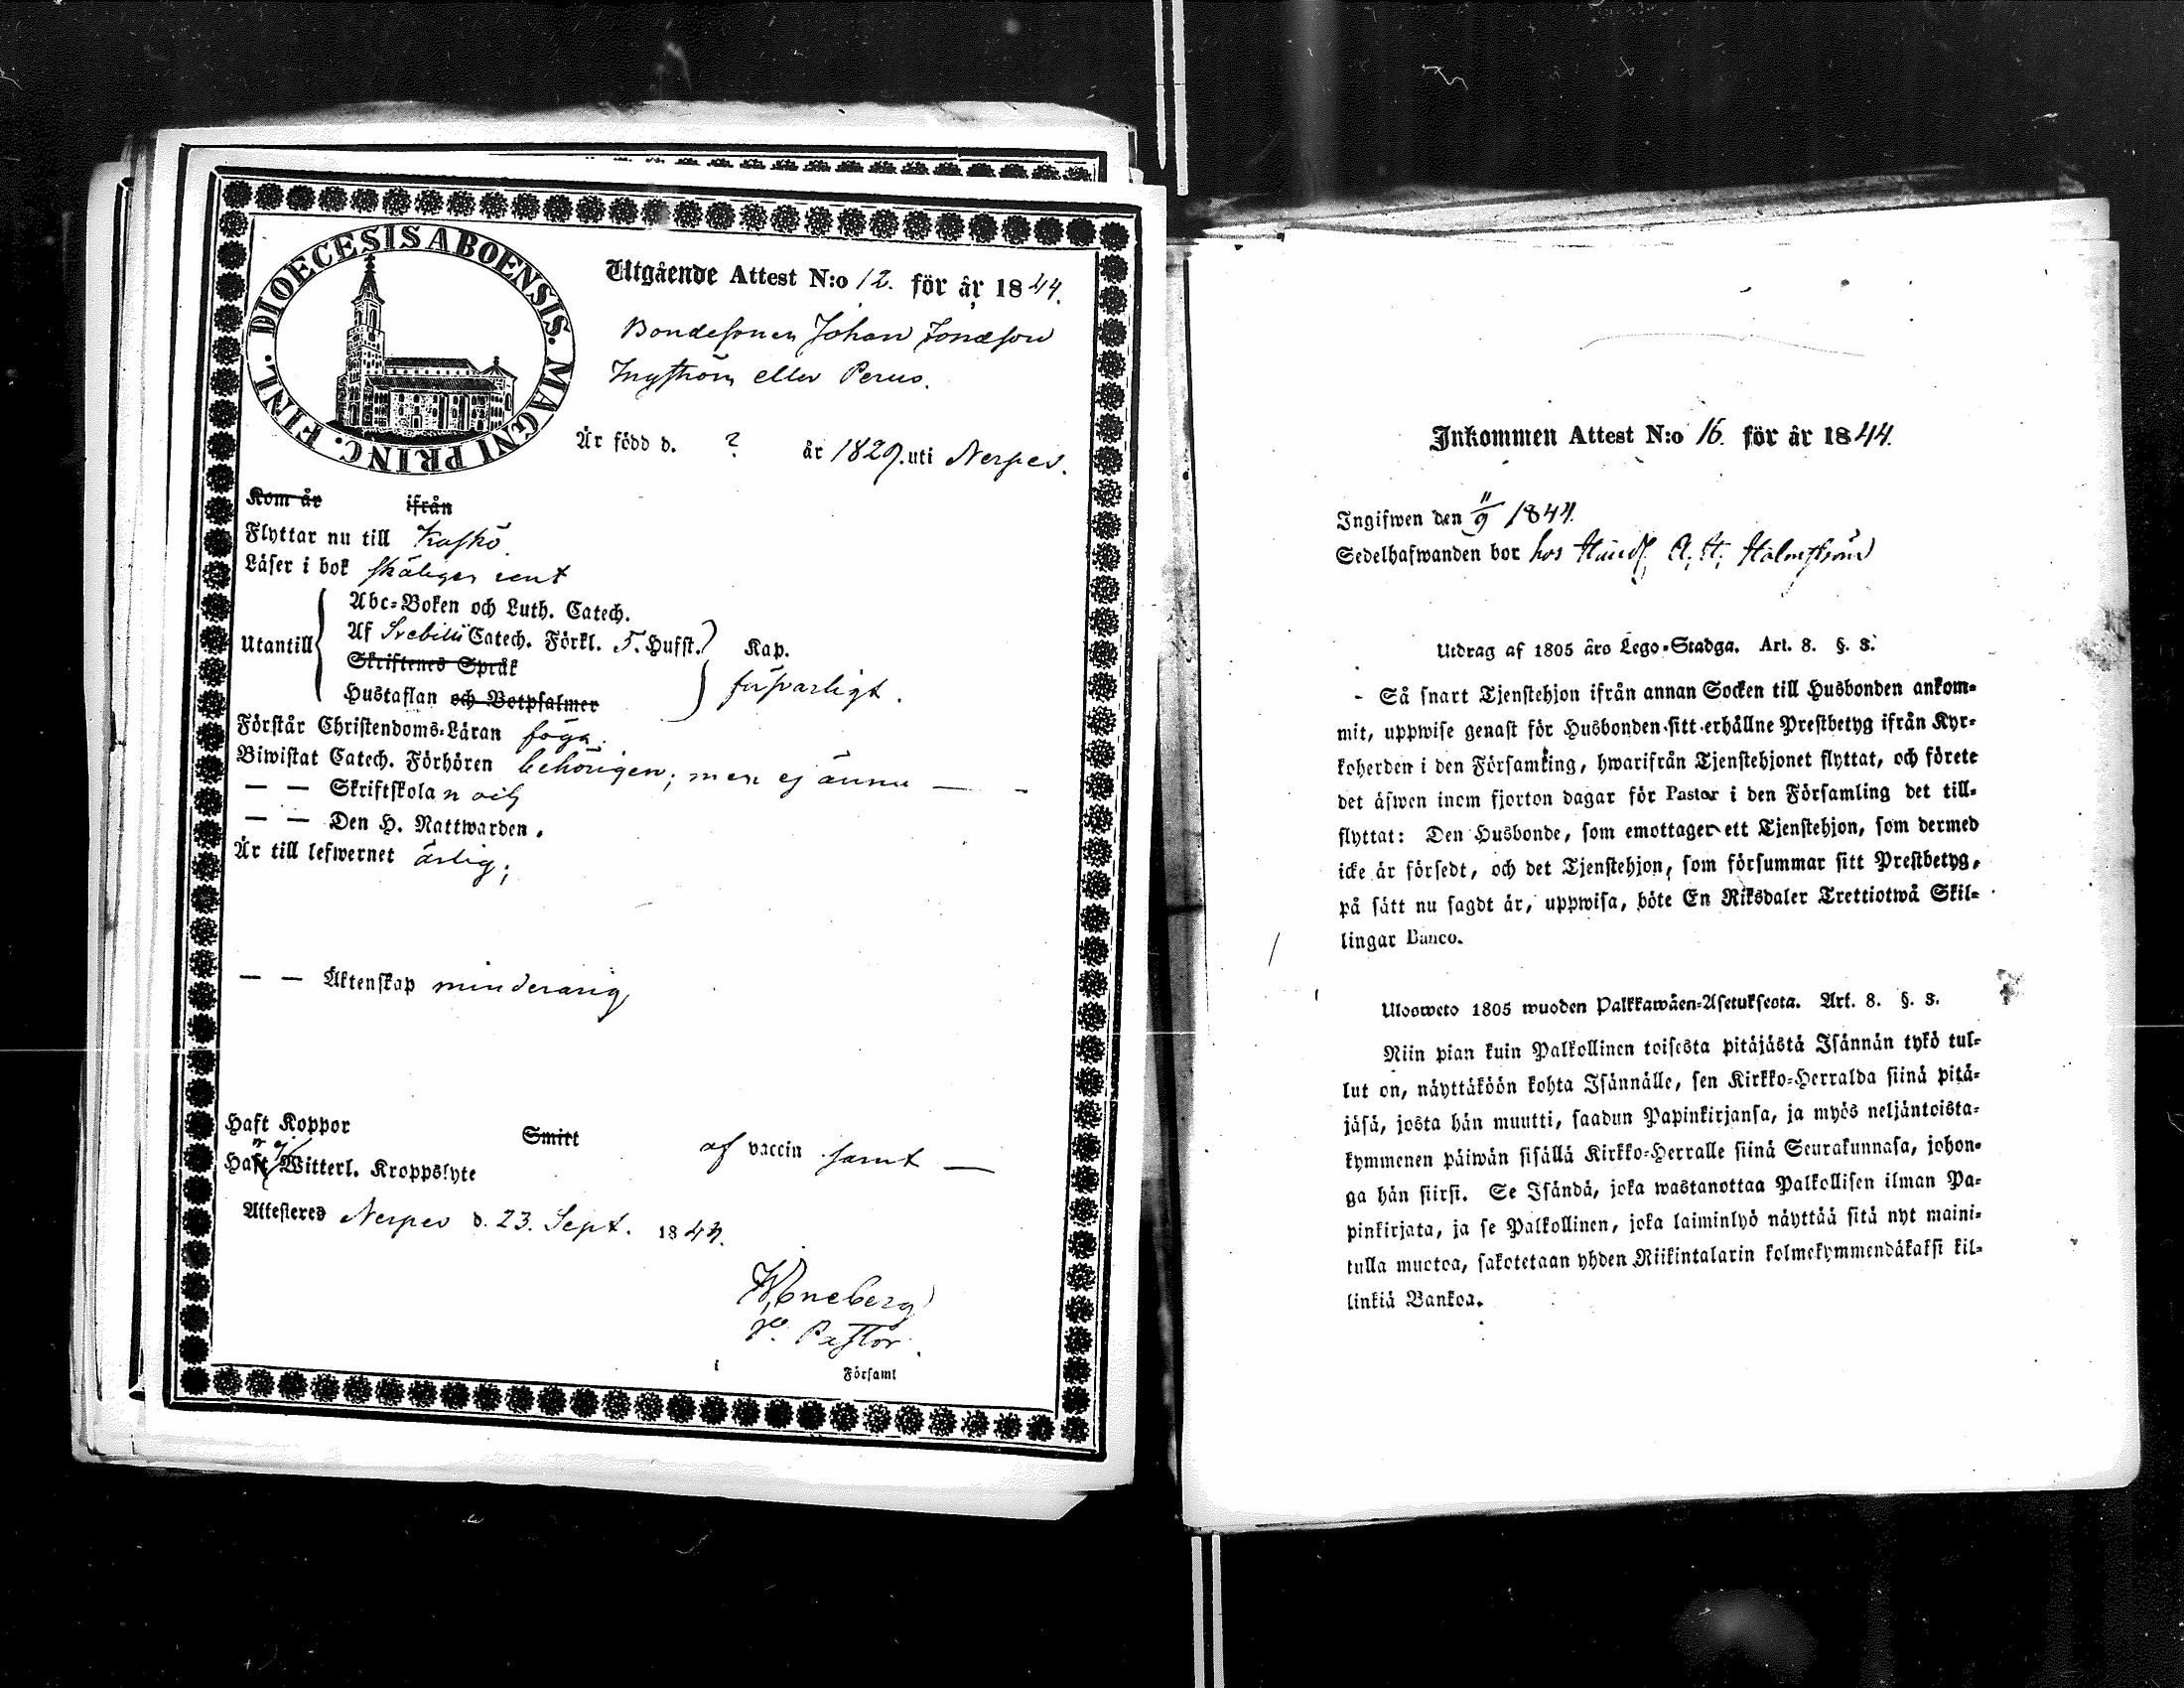 DIOECESIS ABOENSIS. MAGNI PRINC. FINL.
Utgående Attest N:o 12. för år 1844.
Bondesonen Johan Jonasson
Ingström eller Perus.
Är född d. ? år 1829. uti Nerpes.
Kom år ifrån
Flyttar nu till Kaskö.
Läser i bok skäligen rent
Utantill
Abc-Boken och Luth. Catech.
Af Svebilii Catech. Förkl. 5. Hufst. Kap.
Skriftenes Språk
Hustaflan och Botpsalmer
försvarligt.
Förstår Christendoms-Läran föga.
Biwistat Catech. Förhören behörigen; men ej ännu —
— — Skriftskolan och
— — Den H. Nattwarden.
Är till lefwernet ärlig;
— — Äktenskap minderårig
Haft Koppor Smitt af vaccin samt —
ej
Haft Witterl. Kroppslyte
Attesteres Nerpes d. 23. Sept. 1844.
Pastor.
Församl
Inkommen Attest N:o 16. för år 1844.
Ingifwen den 11/9 1844.
Sedelhafwanden bor hos A. H. Holmström
Utdrag af 1805 års Lego-Stadga. Art. 8. §. 3.
- Så snart Tjenstehjon ifrån annan Socken till Husbonden ankom-
mit, uppwise genast för Husbonden sitt erhållne Prestbetyg ifrån Kyr-
koherden i den Församling, hwarifrån Tjenstehjonet flyttat, och förete
det äfwen inom fjorton dagar för Pastor i den Församling det till-
flyttat: Den Husbonde, som emottager ett Tjenstehjon, som dermed
icke är försedt, och det Tjenstehjon, som försummar sitt Prestbetyg,
på sätt nu sagdt är, uppwisa, böte En Riksdaler Trettiotwå Skil-
lingar Banco.
Ulosweto 1805 wuoden Palkkawäen-Asetuksesta. Art. 8. §. 3.
Niin pian kuin Palkollinen toisesta pitäjästä Isännän tykö tul-
lut on, näyttäköön kohta Isännälle, sen Kirkko-Herralda siinä pitä-
jäsä, josta hän muutti, saadun Papinkirjansa, ja myös neljäntoista-
kymmenen päiwän sisällä Kirkko-Herralle siinä Seurakunnasa, johon-
ga hän siirsi. Se Isändä, joka wastanottaa Palkollisen ilman Pa-
pinkirjata, ja se Palkollinen, joka laiminlyö näyttää sitä nyt maini-
tulla muotoa, sakotetaan yhden Riikintalarin kolmekymmendäkaksi kil-
linkiä Bankoa.